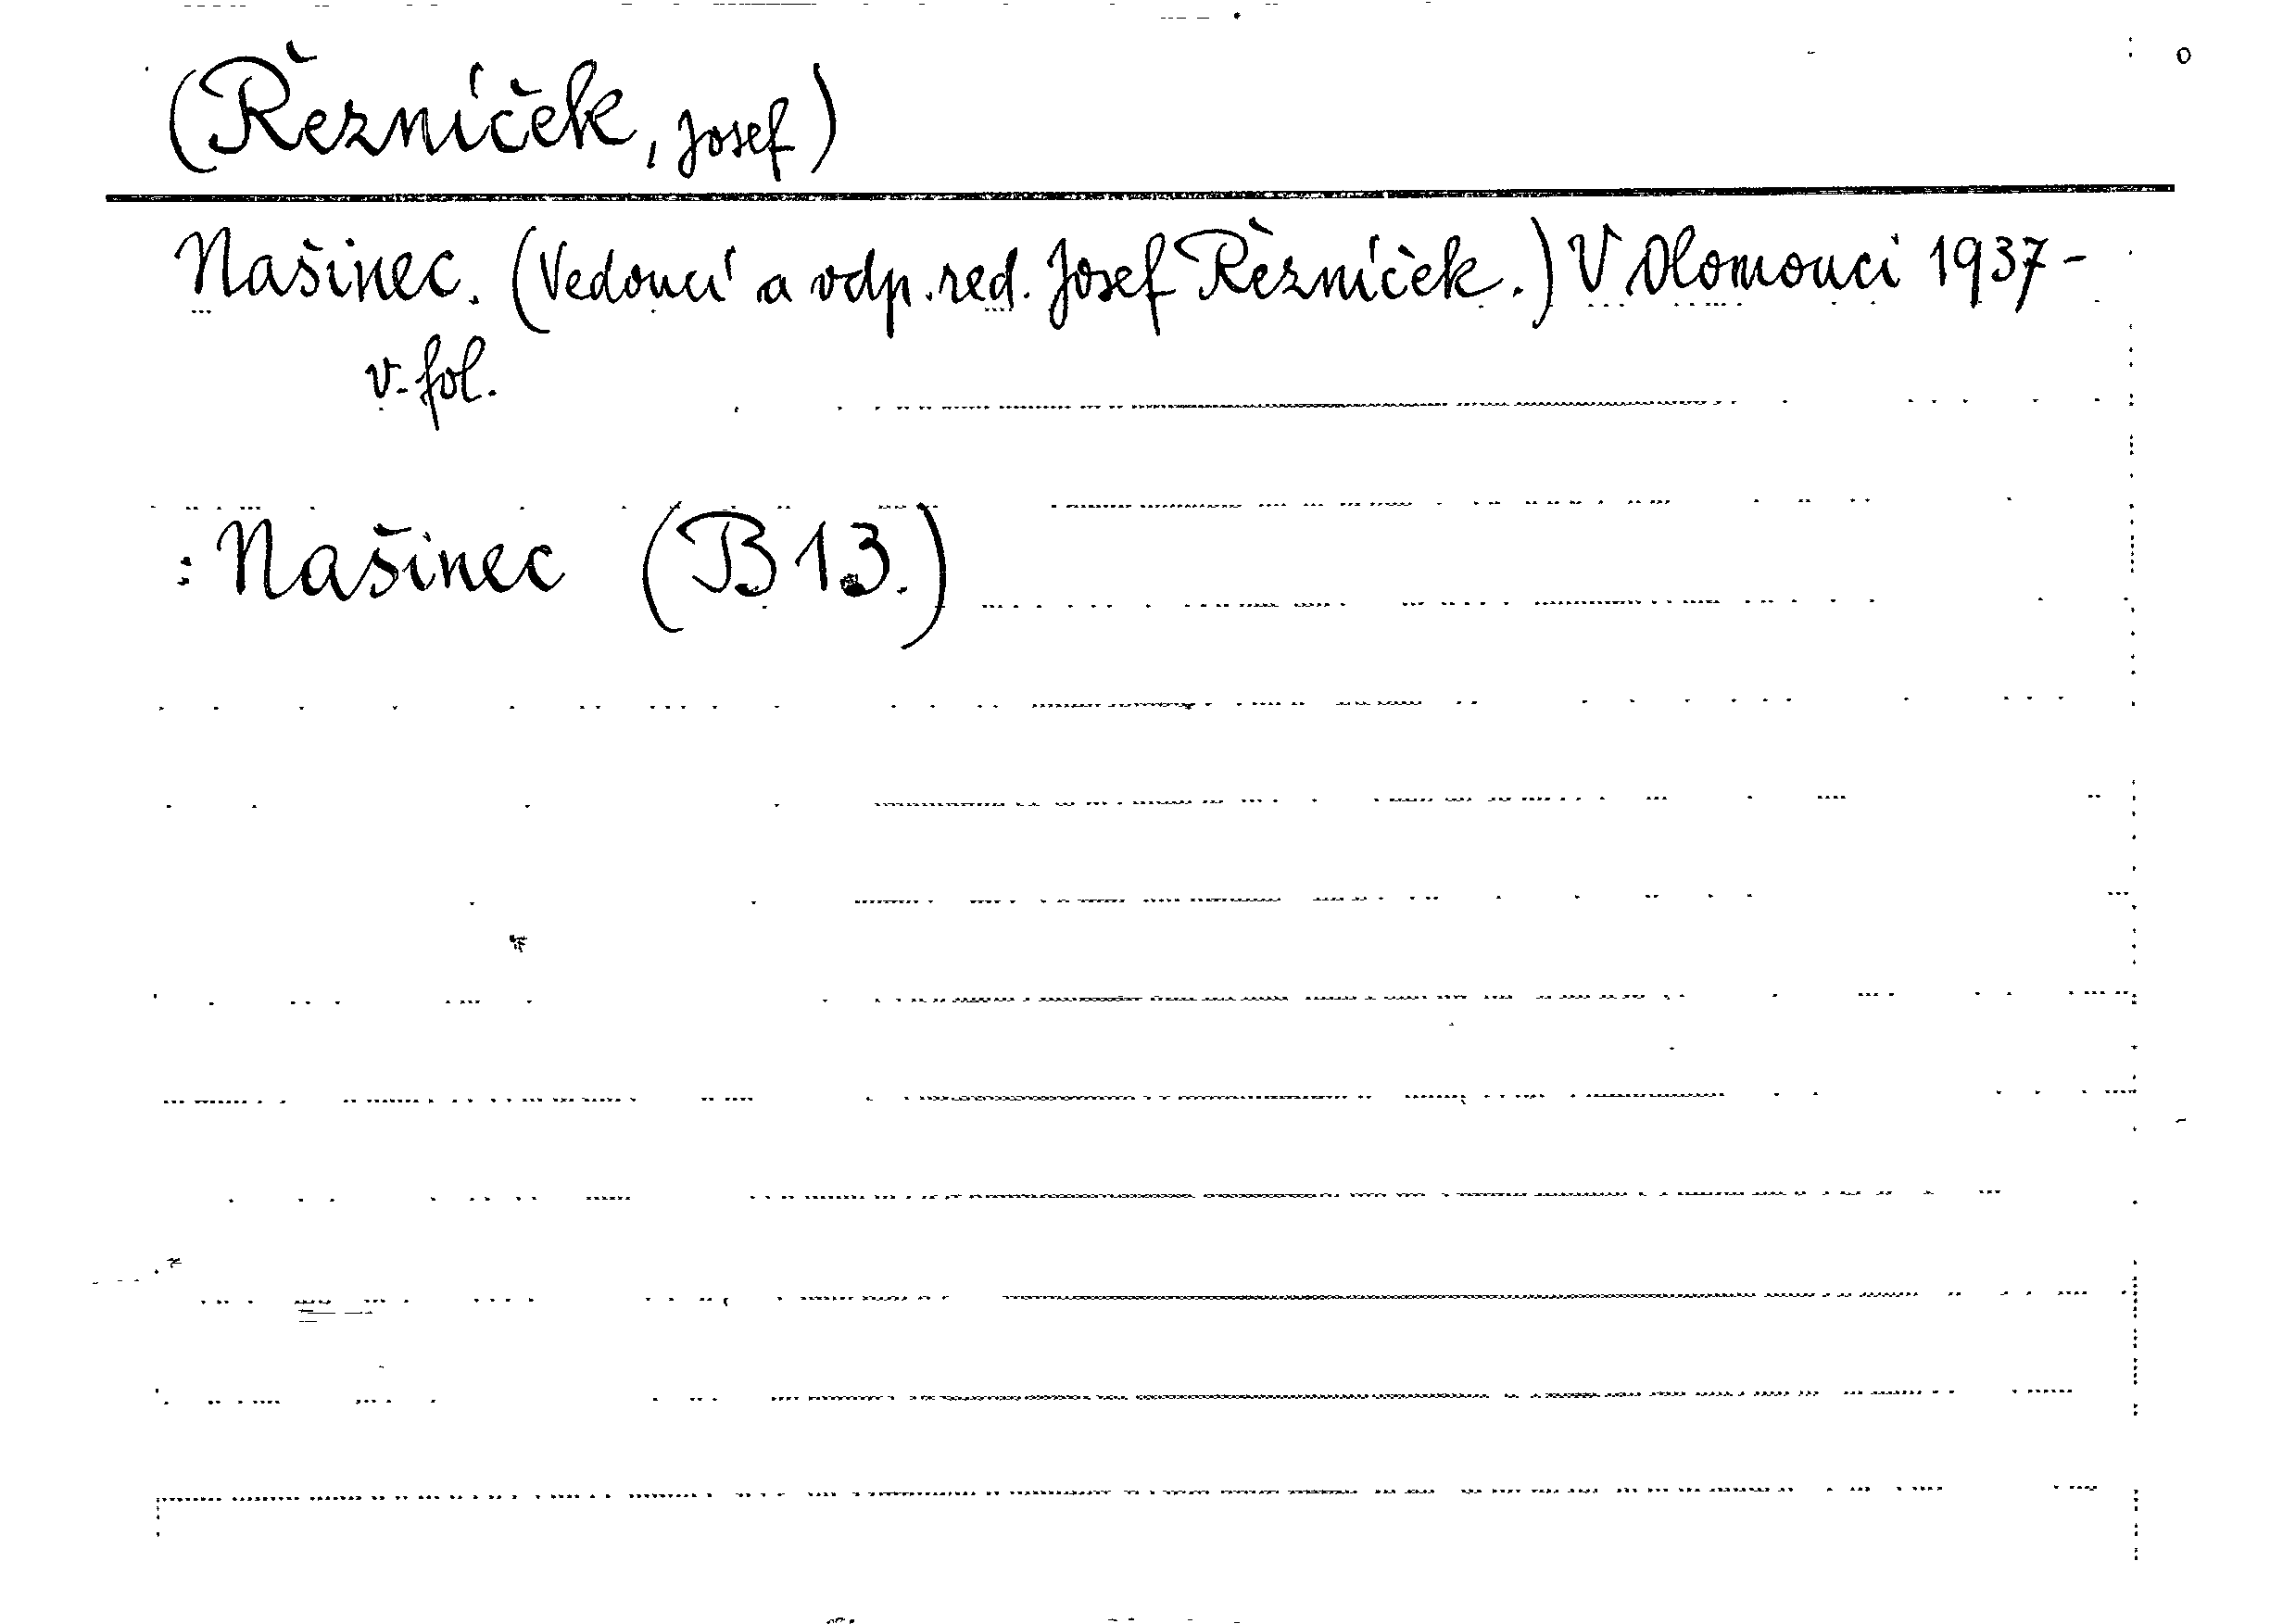 (Řezníček, Josef)
Našinec. (Vedoucí a odp. red. Josef Řezníček.) V Olomouci 1937-
v-fol.
: Našinec (B 13.)